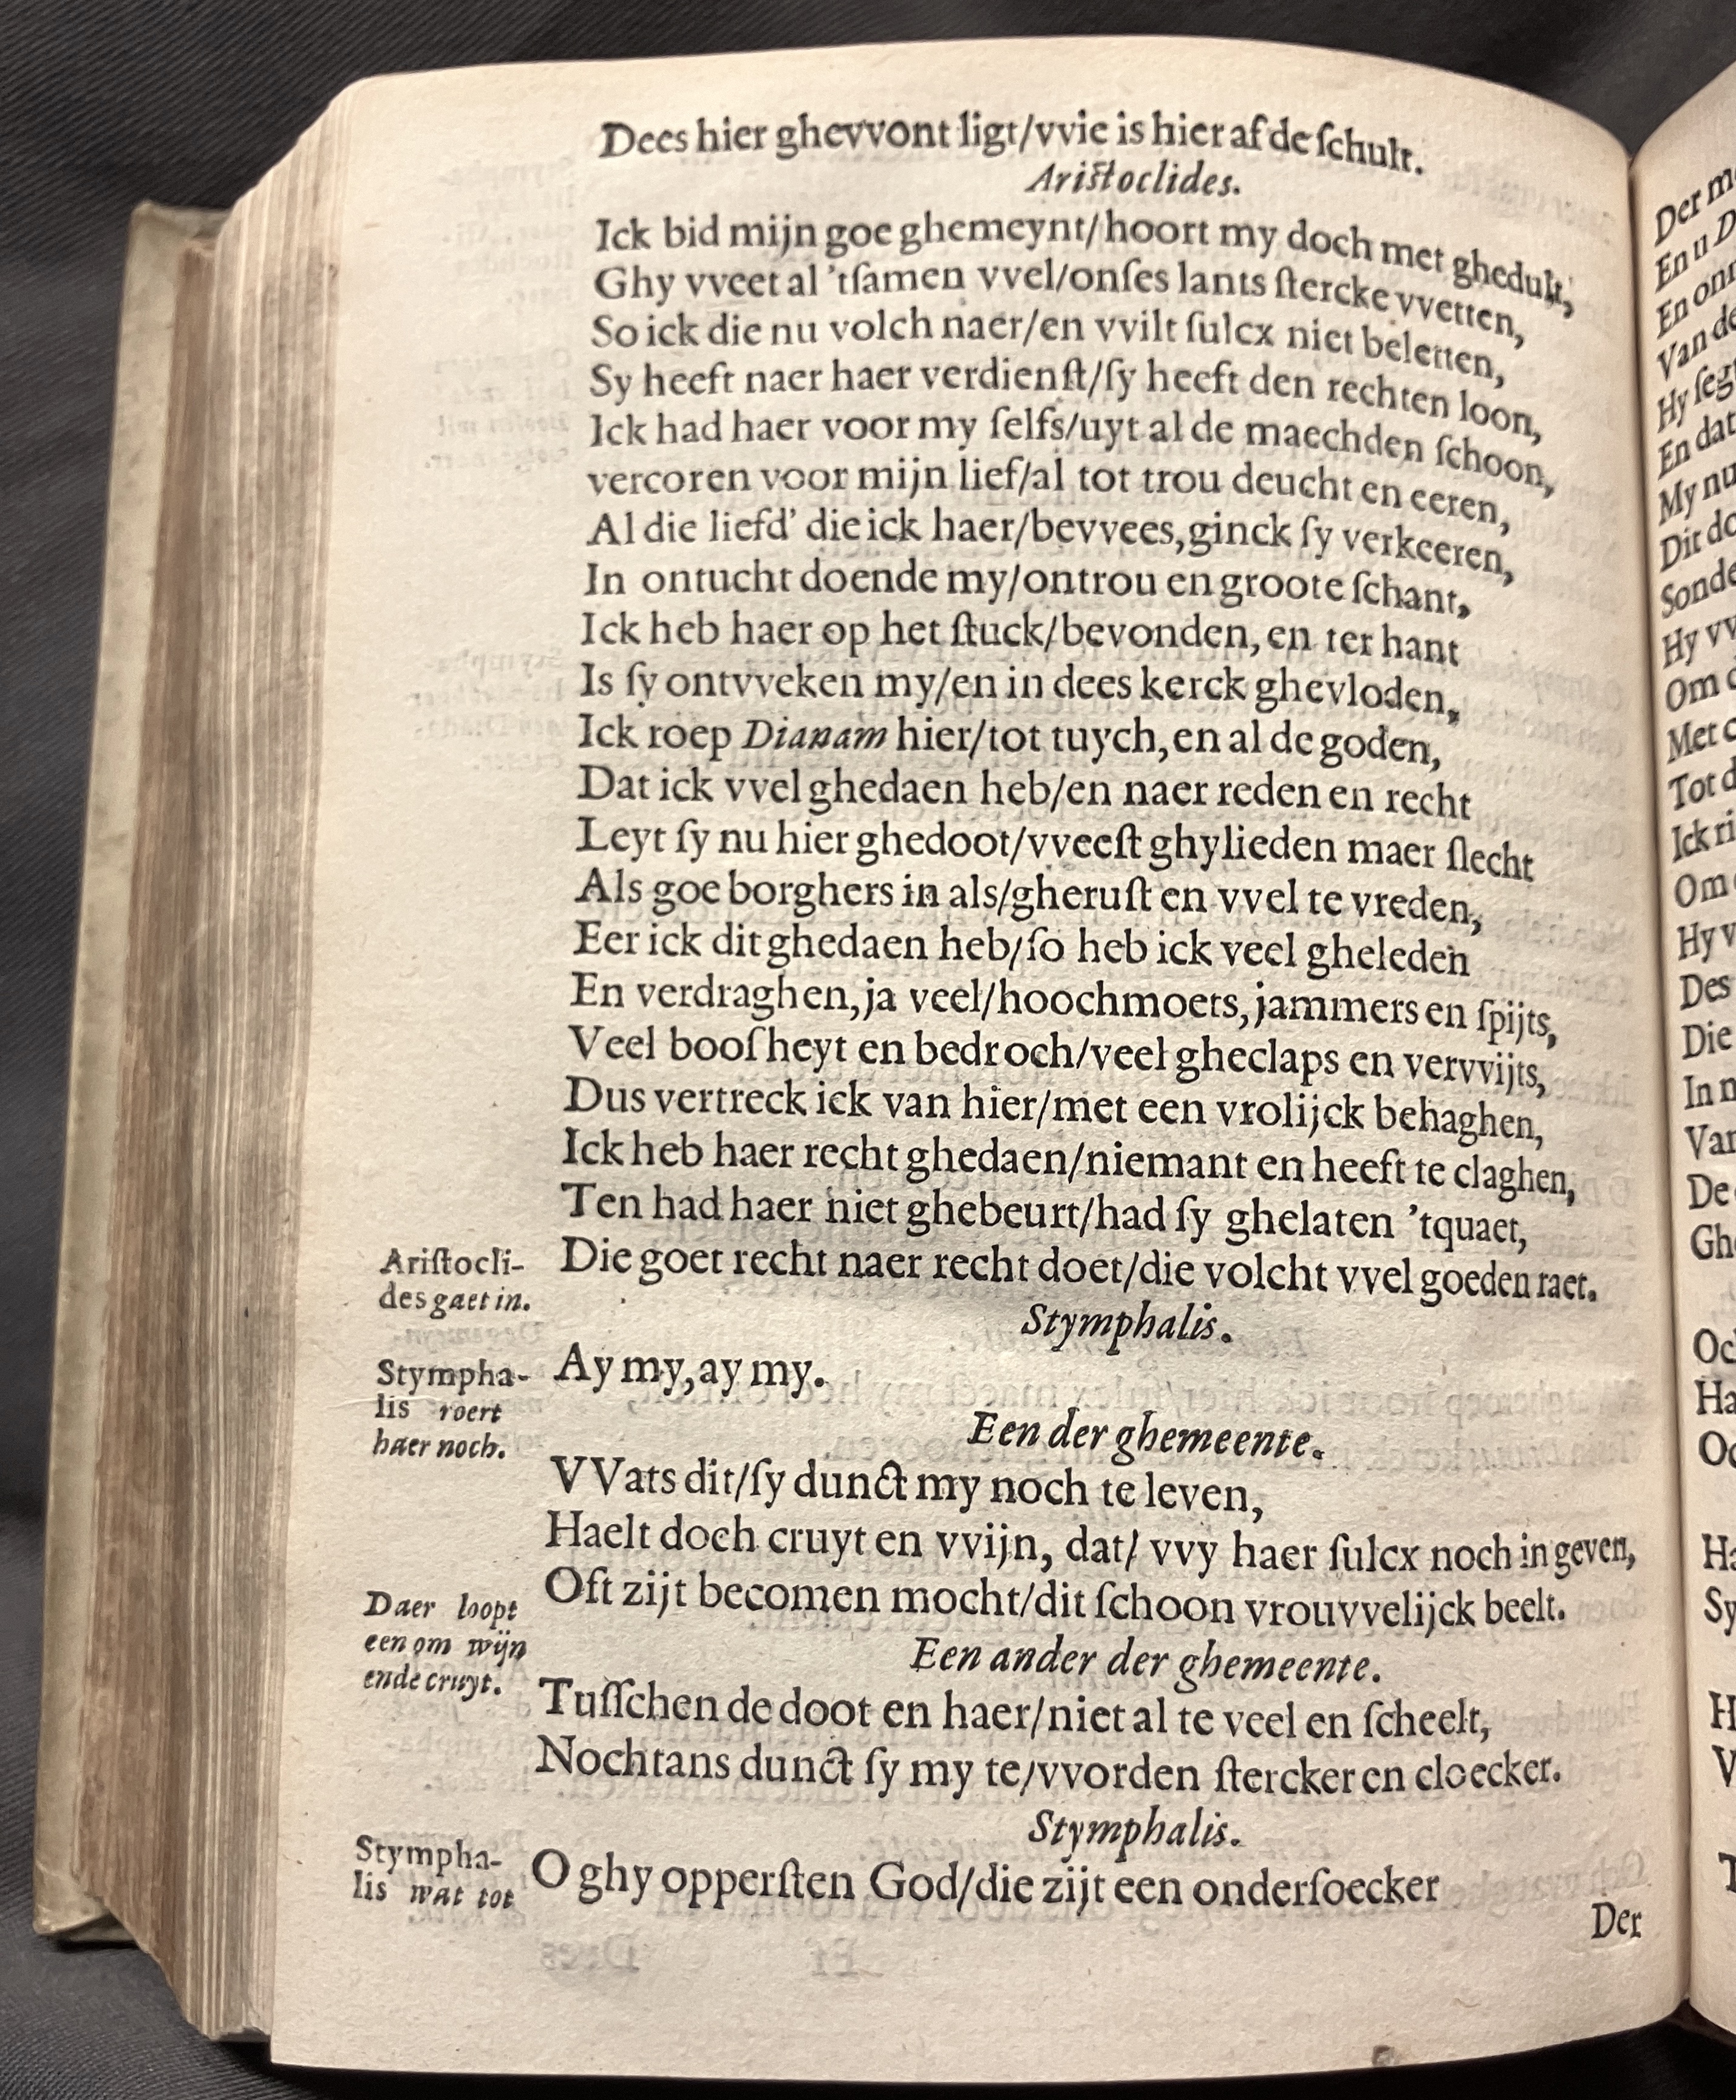 Dees hier ghevvont ligt/vvie is hier af de ſchult.
Ariſtoclides.
Ick bid mijn goe ghemeynt/hoort my doch met ghedult,
Ghy vveet al 'tſamen vvel/onſes lants ſtercke vvetten,
So ick die nu volch naer/en vvilt ſulcx niet beletten,
Sy heeft naer haer verdienſt/ſy heeft den rechten loon,
Ick had haer voor my ſelfs/uyt al de maechden ſchoon,
vercoren voor mijn lief/al tot trou deucht en eeren,
Al die liefd' die ick haer/bevvees, ginck ſy verkeeren,
In ontucht doende my/ontrou en groote ſchant,
Ick heb haer op het ſtuck/bevonden, en ter hant
Is ſy ontvveken my/en in dees kerck ghevloden,
Ick roep Dianam hier/tot tuych, en al de goden,
Dat ick vvel ghedaen heb/en naer reden en recht
Leyt ſy nu hier ghedoot/vveeſt ghylieden maer ſlecht
Als goe borghers in als/gheruſt en vvel te vreden,
Eer ick dit ghedaen heb/ſo heb ick veel gheleden
En verdraghen, ja veel/hoochmoets, jammers en ſpijts,
Veel booſheyt en bedroch/veel gheclaps en vervvijts,
Dus vertreck ick van hier/met een vrolijck behaghen,
Ick heb haer recht ghedaen/niemant en heeft te claghen,
Ten had haer niet ghebeurt/had ſy ghelaten 'tquaet,
Die goet recht naer recht doet/die volcht vvel goeden raet.
Ariſtocli-
des gaet in.
Stymphalis.
Ay my, ay my.
Stympha-
lis roert
haer noch.
Een der ghemeente.
VVats dit/ſy dunct my noch te leven,
Haelt doch cruyt en vvijn, dat/ vvy haer ſulcx noch in geven,
Oft zijt becomen mocht/dit ſchoon vrouvvelijck beelt.
Daer loopt
een om wijn
ende cruyt.
Een ander der ghemeente.
Tuſſchen de doot en haer/niet al te veel en ſcheelt,
Nochtans dunct ſy my te/vvorden ſtercker en cloecker.
Stymphalis.
Stympha-
lis wat tot
O ghy opperſten God/die zijt een onderſoecker
Der